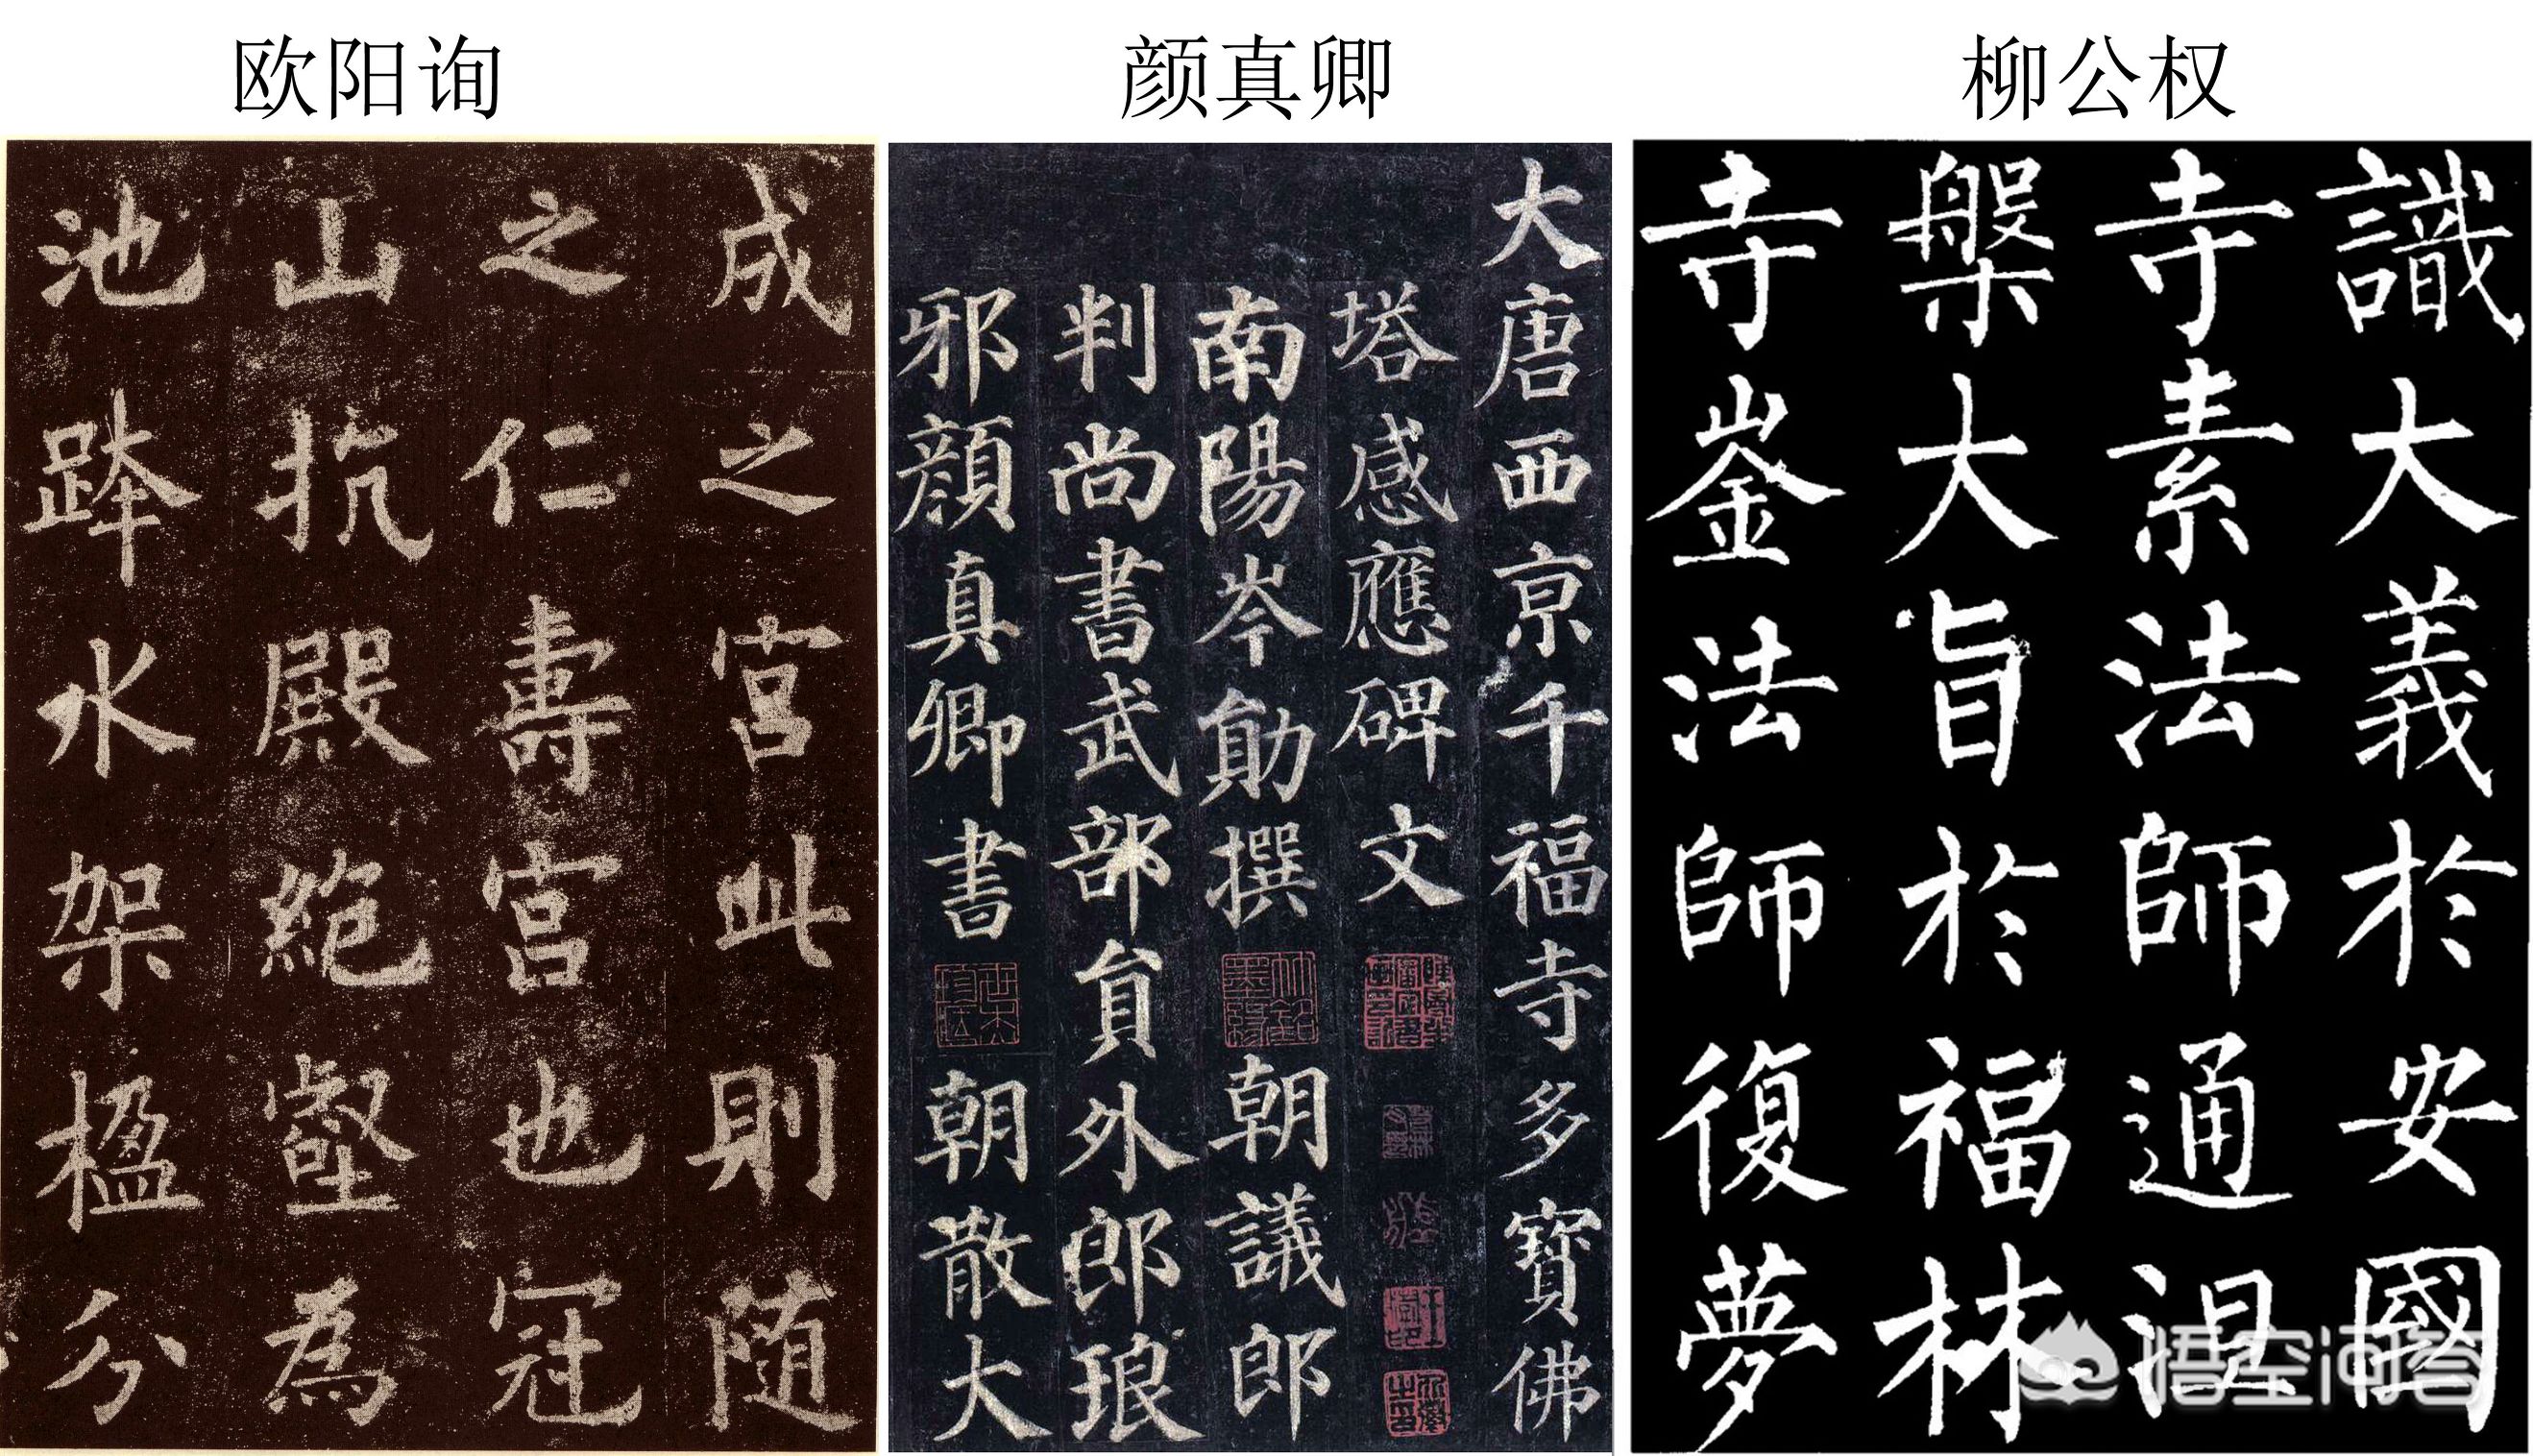 欧阳询
成之宫此則随
之仁壽宫也冠
山抗殿絕壑為
池跨水架楹分
颜真卿
大唐西京千福寺多寶佛
塔感應碑文
南陽岑勛撰 朝議郎
判尚書武部員外郎琅
邪顏真卿書 朝散大
柳公权
識大義於安國
寺素法師通涅
槃大旨於福林
寺崟法師復夢
悟空问答